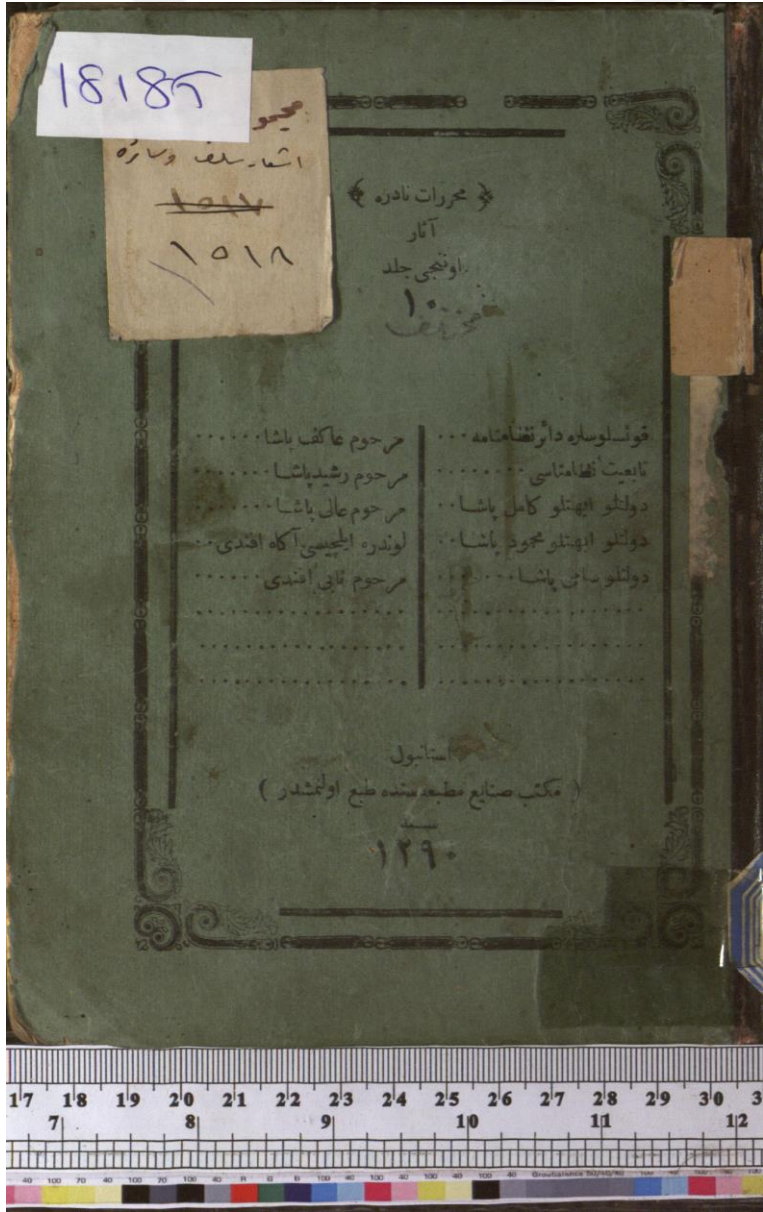 18185
مجمو
اشعار سلف وسائره
١٥١٧
١٥١٨
﴿ محررات نادره ﴾
آثار
اوننجی جلد
١٠
قونسلوسلره دائر نظامنامه . . .
تابعیت نظامنامسی . . . . . . . .
دولتلو ابهتلو کامل پاشا . .
دولتلو ابهتلو محمود پاشا . .
دولتلو سامی پاشا . . . . . . .
مرحوم عاکف پاشا . . . . . .
مرحوم رشید پاشا . . . . . .
مرحوم عالی پاشا . . . . . .
لوندره ایلچیسی آکاه افندی . .
مرحوم نابی افندی . . . . . .
استانبول
( مکتب صنایع مطبعه سنده طبع اولنمشدر )
سنه
١٢٩٠
17 18 19 20 21 22 23 24 25 26 27 28 29 30 3
7 8 9 10 11 12